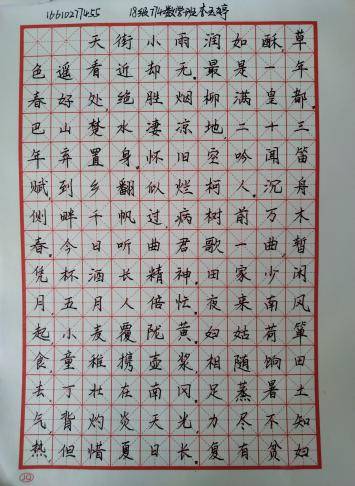 16610277455 18级 数学班李玉婷
天街小雨润如酥,草
色遥看近却无。最是一年
春好处绝胜烟柳满皇都。
巴山楚水凄凉地,二十三
年弃置身。怀旧空吟闻笛
赋,到乡翻似烂柯人。沉舟
侧畔千帆过,病树前万木
春。今日听曲君歌一曲,暂
凭杯酒长精神。田家少闲
月,五月人倍忙。夜来南风
起,小麦覆陇黄。妇姑荷箪
食,童稚携壶浆。相随饷田
去,丁壮在南冈。足蒸暑土
气,背灼炎天光,力尽不知
热,但惜夏日长。复有贫妇